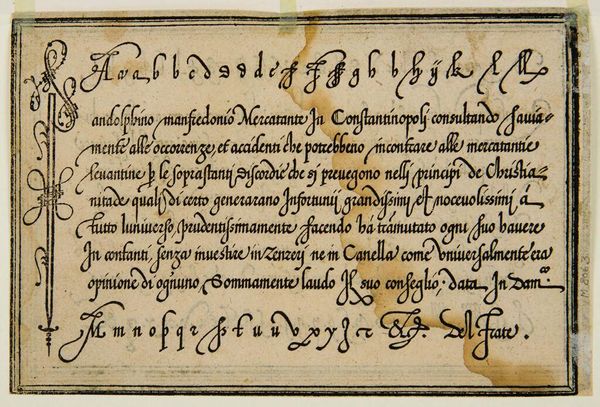 A a a b b c d d d d e f f f g b b h y k l ll
andolphino manfredonio Mercatante In Constantinopoli consultando savia-
mente alle occorrenze, et accidenti che potrebbeno incontrare alle mercatantie
levantine p le soprastanti, discordie che si prevegono nelli principi de Christia-
nitade quali di certo generarano Infortunij grandissimi et nocevolissimi á
tutto luniverso, prudentissimamente facendo ha tramutato ogni suo havere
In contanti, senza investire in zenzerj ne in Canella come Universalmente era
opinione di ogniuno, Sommamente laudo Il suo conseglio, data In Dam.co
M m n o p q r s t u u v x y z &
Del frate.
M.8063